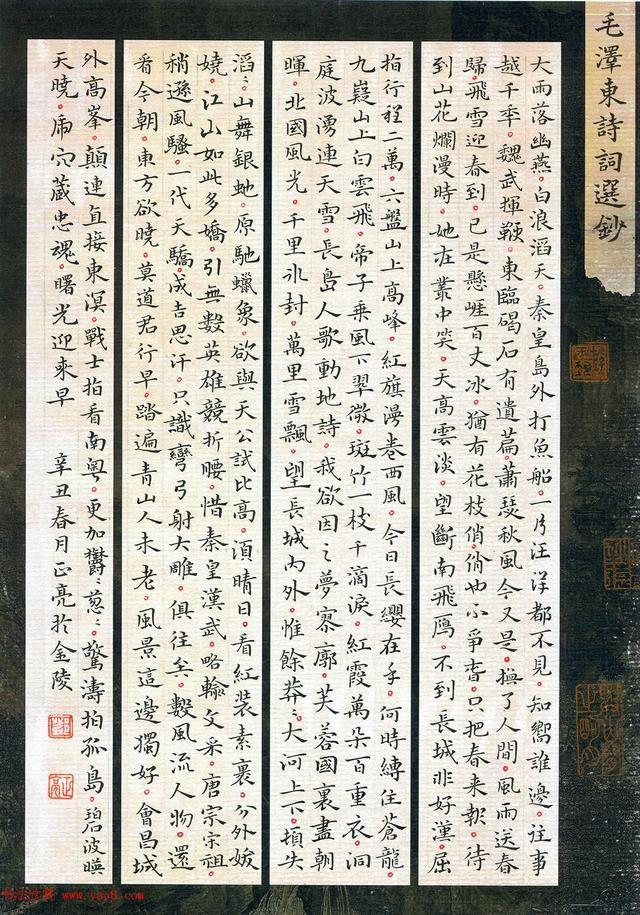 毛澤東詩詞選鈔
大雨落幽燕。白浪滔天。秦皇島外打魚船。一片汪洋都不見。知嚮誰邊。往事
越千年。魏武揮鞭。東臨碣石有遺篇。蕭瑟秋風今又是。換了人間。風雨送春
歸飛雪迎春到。已是懸崖百丈冰。猶有花枝俏。俏也不爭春。只把春來報。待
到山花爛漫時。她在叢中笑。天高雲淡。望斷南飛鴈。不到長城非好漢。屈
指行程二萬。六盤山上高峰。紅旗漫卷西風。今日長纓在手。何時縛住蒼龍。
九嶷山上白雲飛。帝子乘風下翠微。斑竹一枝千滴淚。紅霞萬朵百重衣。洞
庭波湧連天雪。長島人歌動地詩。我欲因之夢寥廓。芙蓉國裏盡朝
暉。北國風光。千里冰封。萬里雪飄。望長城內外。惟餘莽〻。大河上下。頓失
滔〻。山舞銀蛇。原馳蠟象。欲與天公試比高。須晴日。看紅裝素裹。分外妖
嬈。江山如此多嬌。引無數英雄競折腰。惜秦皇漢武。略輸文采。唐宗宋祖。
稍遜風騷。一代天驕。成吉思汗。只識彎弓射大雕。俱往矣。數風流人物。還
看今朝。東方欲曉。莫道君行早。踏遍青山人未老。風景這邊獨好。會昌城
外高峯。顛連直接東溟。戰士指看南粵。更加鬱〻蔥〻。驚濤拍孤島。碧波映
天曉。虎穴藏忠魂。曙光迎來早 辛丑春月正亮於金陵
www.yac8.com